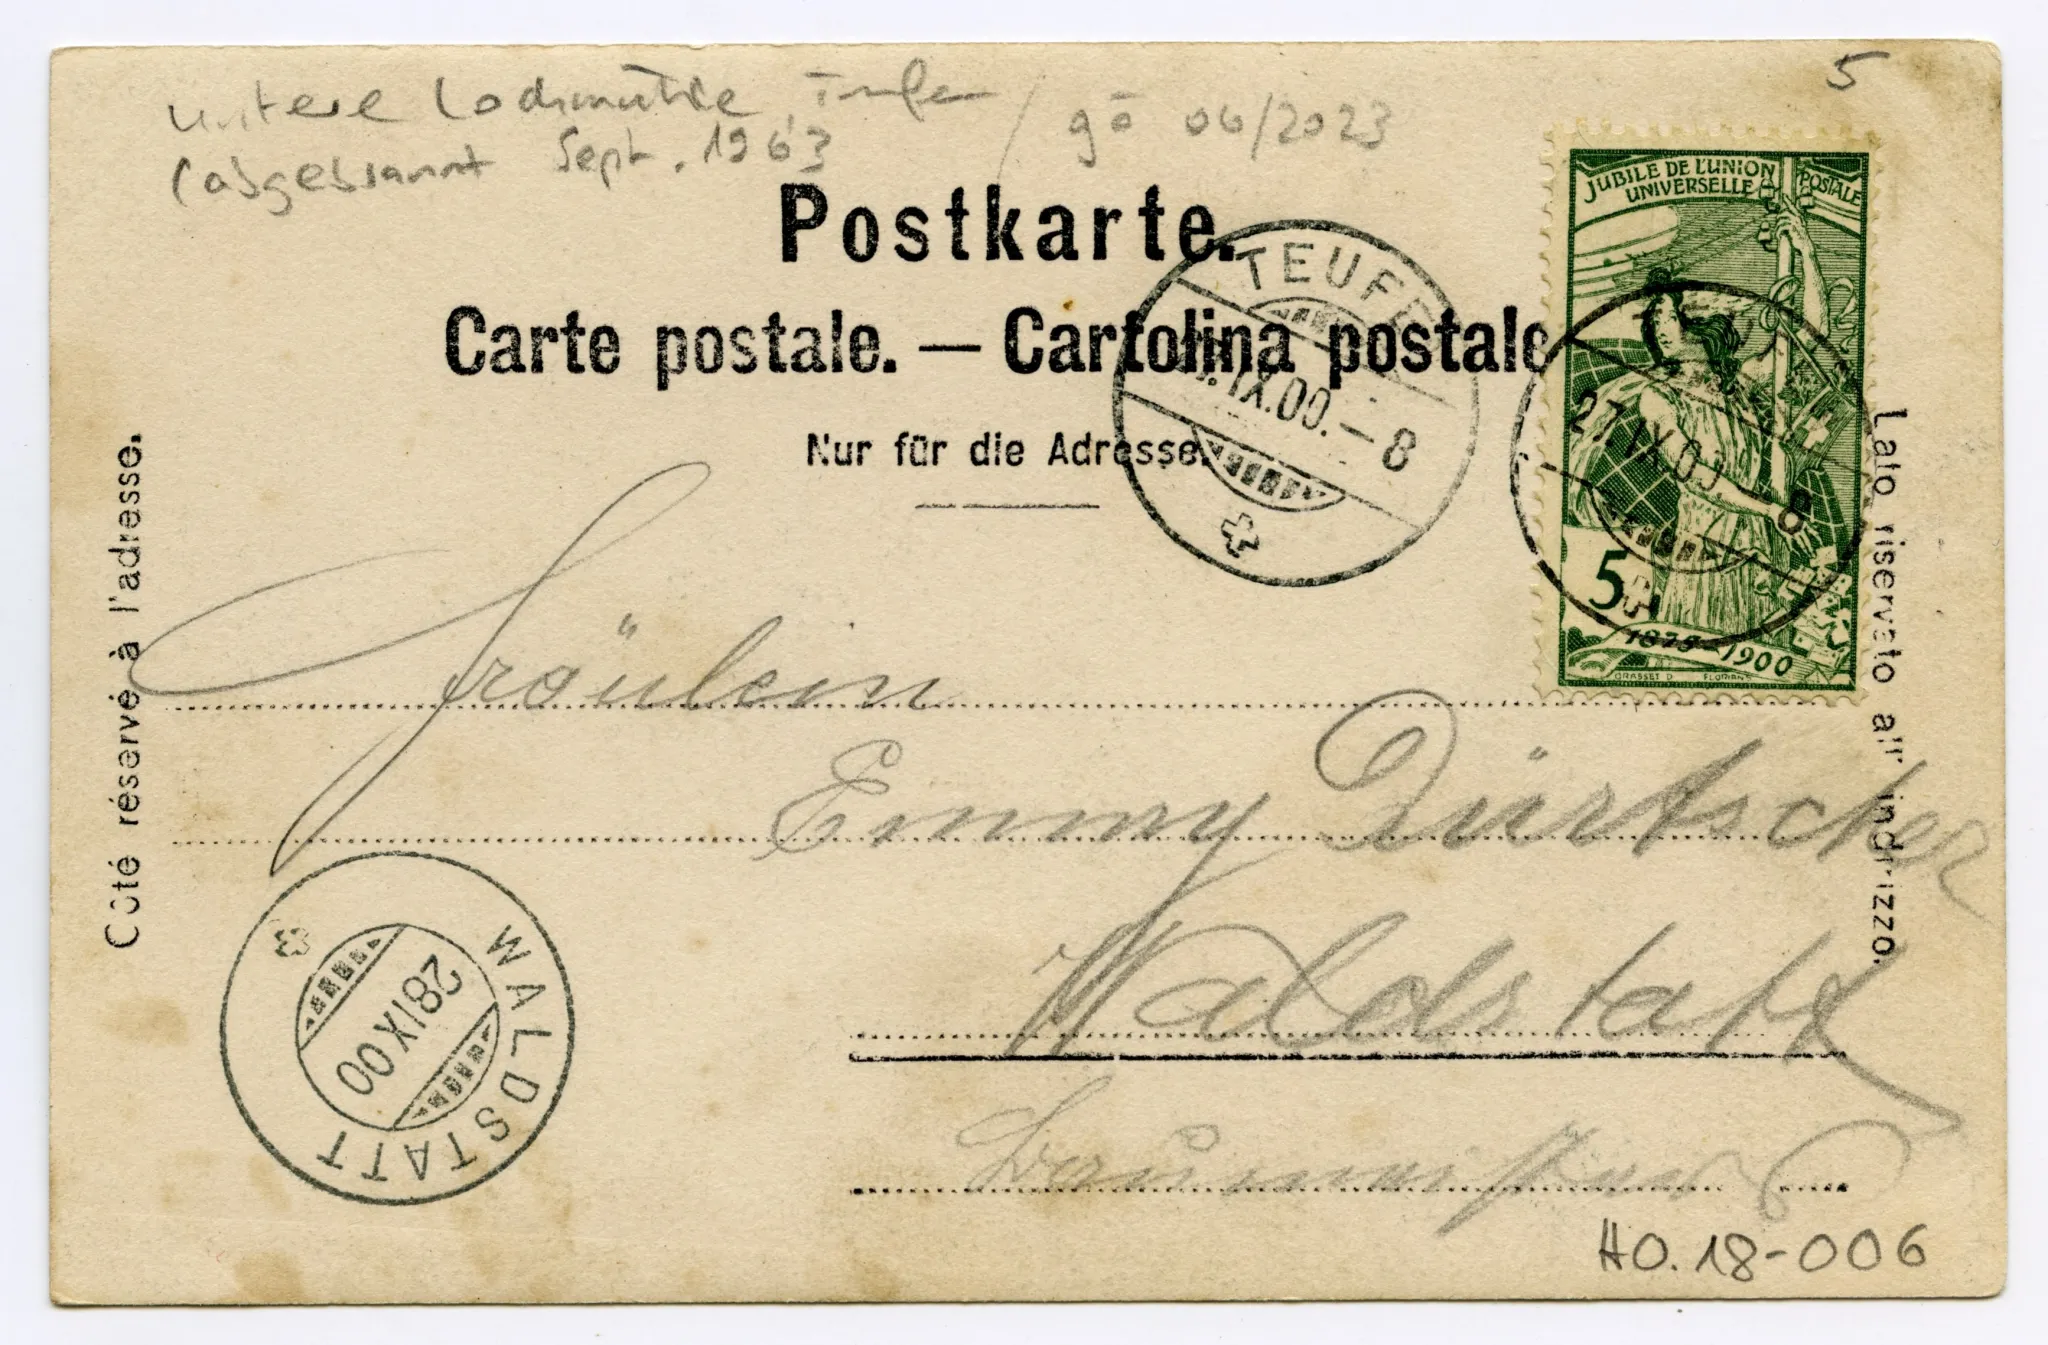 untere Lochmühle, Teufen / gö 06/2023
(abgebrannt Sept. 1963
5
Postkarte.
Carte postale. — Cartolina postale
Nur für die Adresse.
TEUFEN
IX.00.-8
JUBILÉ DE L'UNION POSTALE
UNIVERSELLE
27.IX.00.-8
5
1875-1900
GRASSET D FLORIAN
Côté réservé à l'adresse.
Lato riservato all' indirizzo.
Fräulein
Emmy Dürtscher
Waldstatt
Baumeister
WALDSTATT
28 IX 00
HO.18-006